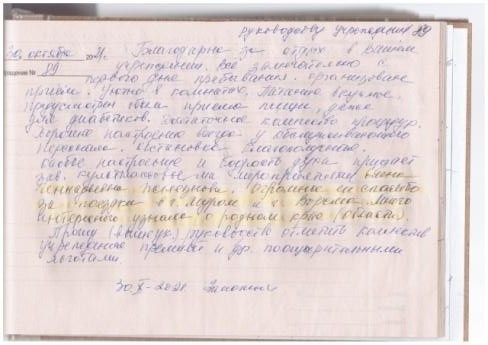 руководству учреждения 89
30 октября 2021г. Благодарна за отдых в Вашем
ращение № 89 учреждении. Все замечательно с
первого дня пребывания. Организован
прием. Уютно в комнатах. Питание вкусное.
Предусмотрен обмен приема пищи, даже
для диабетиков. Достаточное количество процедур.
Хорошее настроение всегда у обслуживающего
персонала. Обстановка благополучная.
Особое настроение и бодрость духа придает
зав. культмассовые на мероприятиях
Огромное ей спасибо
за поездки в г. Муром и г. Ворсма. Много
интересного узнала о родном крае (области).
Прошу руководство отметить коллектив
учреждения премией и др. поощрительными
льготами.
30.X-2021